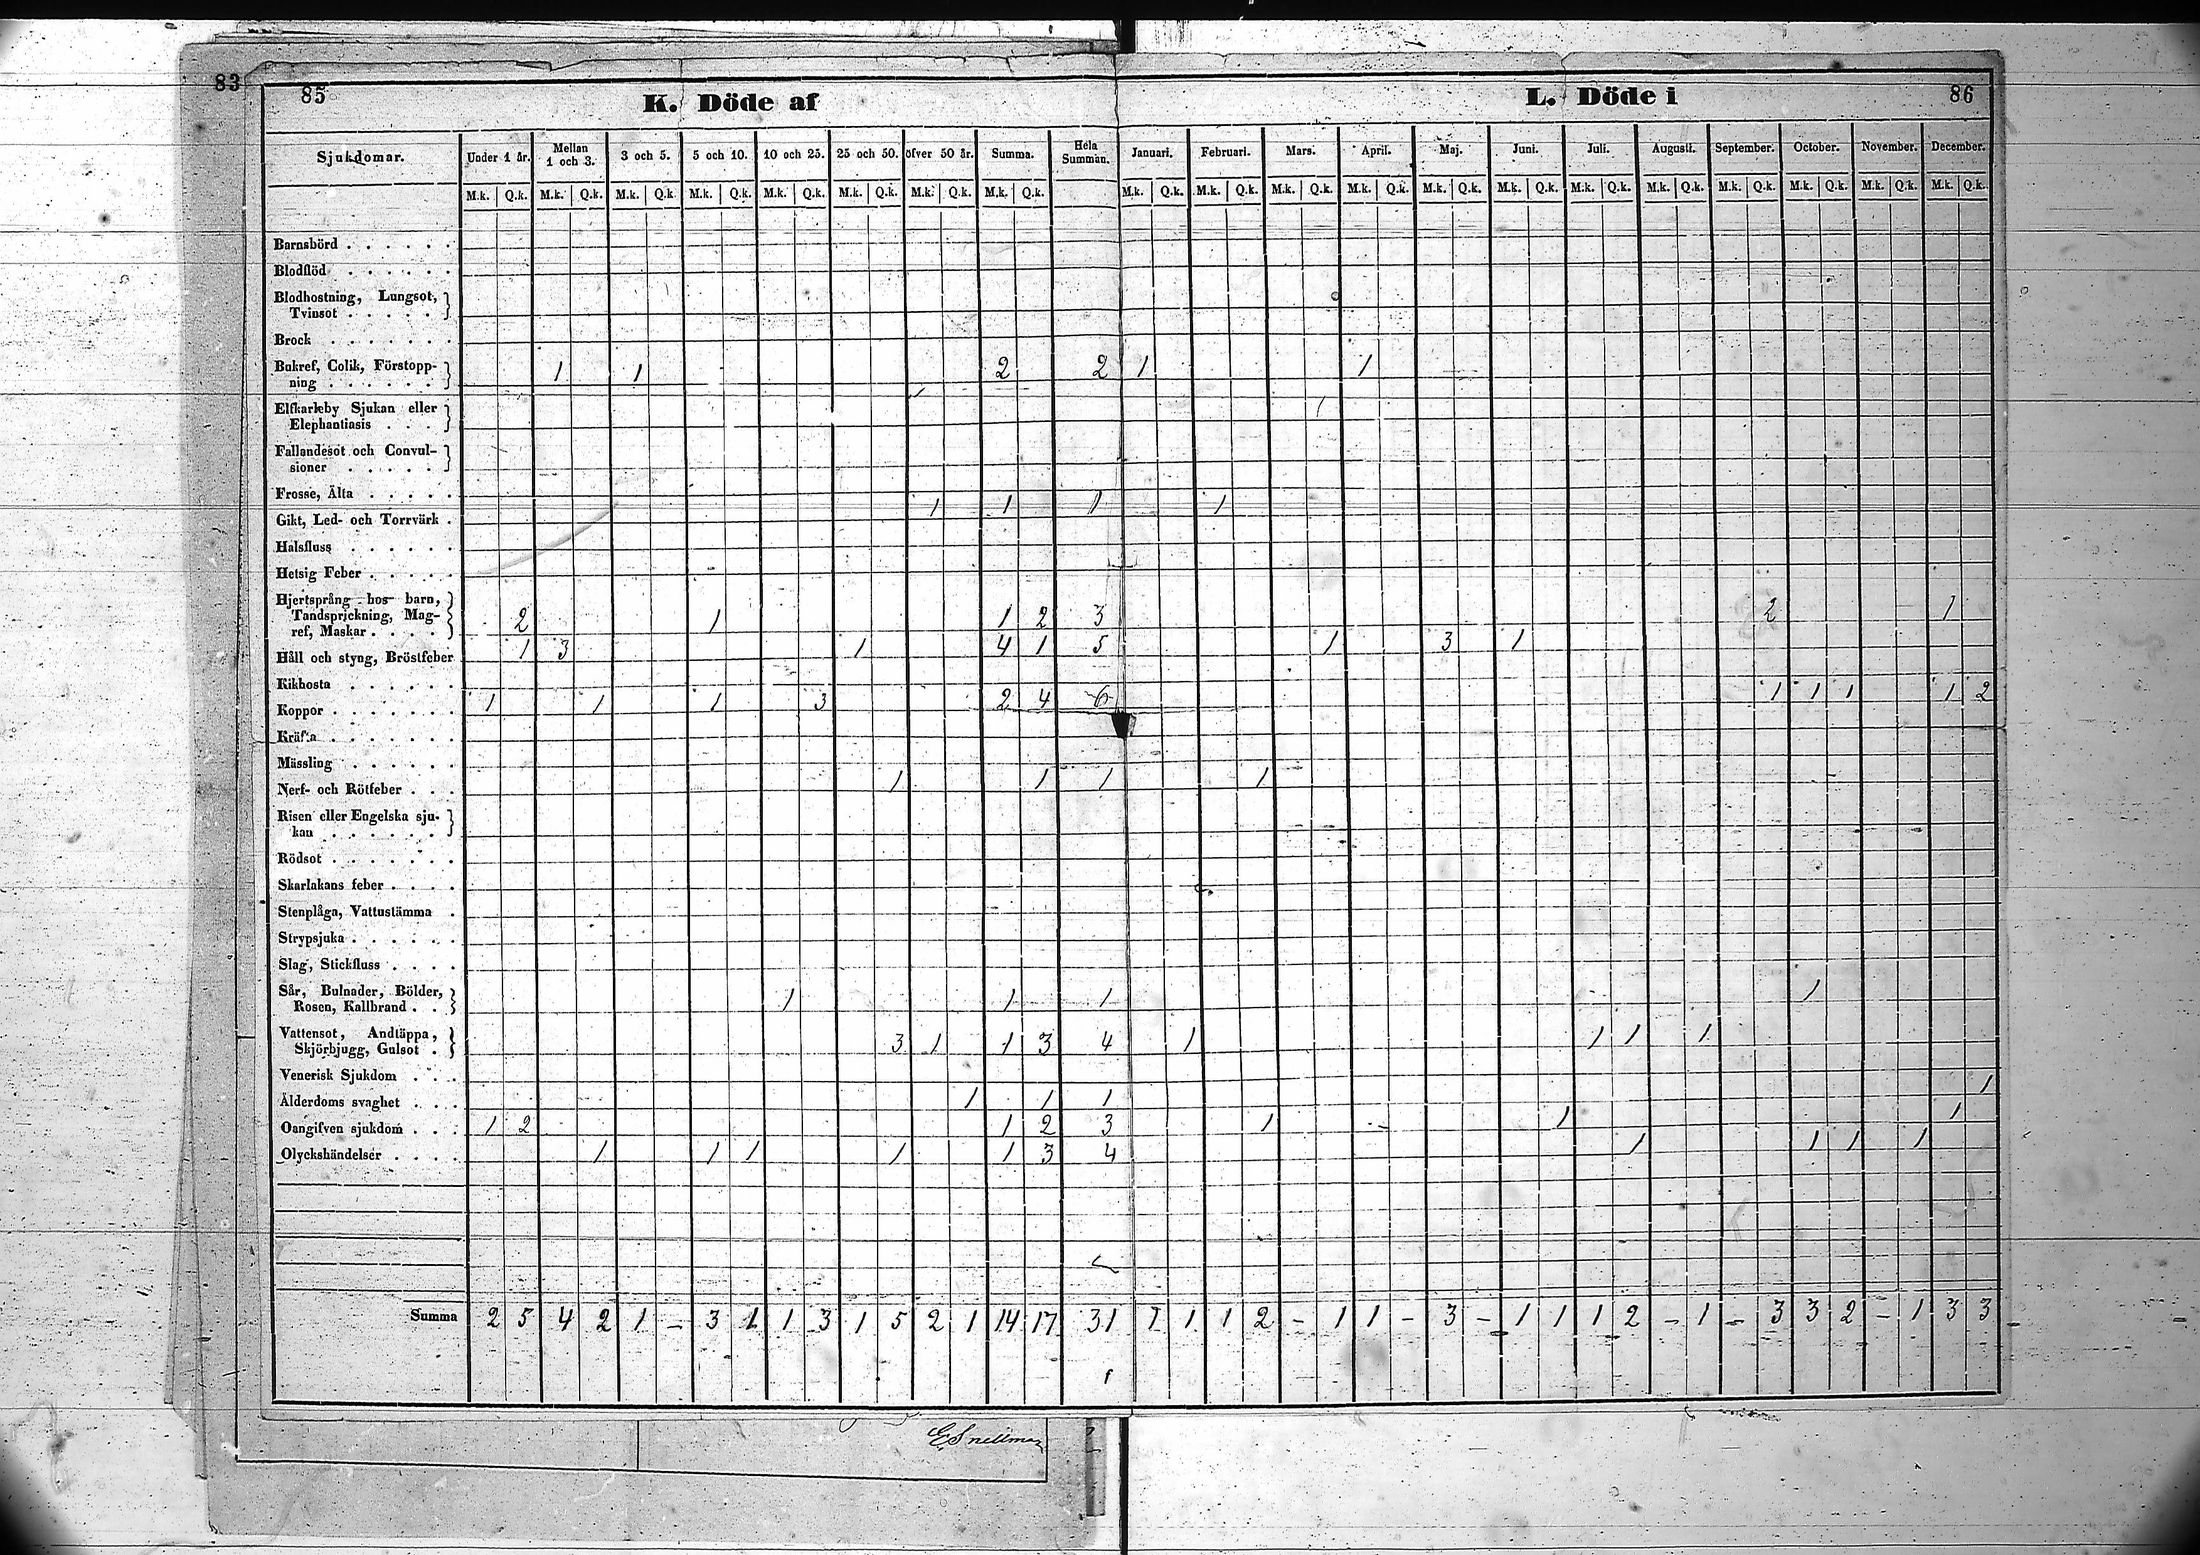 83
85 K. Döde af L. Döde i 86
Sjukdomar. Under 1 år. Mellan 1 och 3. 3 och 5. 5 och 10. 10 och 25. 25 och 50. öfver 50 år. Summa. Hela Summan. Januari. Februari. Mars. April. Maj. Juni. Juli. Augusti. September. October. November. December.
M.k. Q.k. M.k. Q.k. M.k. Q.k. M.k. Q.k. M.k. Q.k. M.k. Q.k. M.k. Q.k. M.k. Q.k. M.k. Q.k. M.k. Q.k. M.k. Q.k. M.k. Q.k. M.k. Q.k. M.k. Q.k. M.k. Q.k. M.k. Q.k. M.k. Q.k. M.k. Q.k. M.k. Q.k. M.k. Q.k.
Barnsbörd . . . . . .
Blodflöd . . . . . .
Blodhostning, Lungsot,
Tvinsot . . . . .
Brock . . . . . . .
Bukref, Colik, Förstopp-
ning . . . . . . 1 1 2 2 1 1
Elfkarleby Sjukan eller
Elephantiasis . . .
Fallandesot och Convul-
sioner . . . . .
Frosse, Älta . . . . .
Gikt, Led- och Torrvärk . 1 1 1 1
Halsfluss . . . . . .
Hetsig Feber . . . . .
Hjertsprång hos barn,
Tandsprickning, Mag-
ref, Maskar . . . . 2 1 1 2 3 2 1
Håll och styng, Bröstfeber 1 3 1 4 1 5 1 3 1
Kikhosta . . . . . .
Koppor . . . . . . . 1 1 1 3 2 4 6 1 1 1 1 2
Kräfta . . . . . . .
Mässling . . . . . .
Nerf- och Rötfeber . . . 1 1 1 1
Risen eller Engelska sju-
kan . . . . . .
Rödsot . . . . . . .
Skarlakans feber . . . .
Stenplåga, Vattustämma .
Strypsjuka . . . . . .
Slag, Stickfluss . . . .
Sår, Bulnader, Bölder,
Rosen, Kallbrand . . 1 1 1 1
Vattensot, Andtäppa,
Skjörbjugg, Gulsot . 3 1 1 3 4 1 1 1 1
Venerisk Sjukdom . . .
Ålderdoms svaghet . . . 1 1 1 1
Oangifven sjukdom . . . 1 2 1 2 3 1 1 1
Olyckshändelser . . . . 1 1 1 1 1 3 4 1 1 1 1
Summa 2 5 4 2 1 – 3 1 1 3 1 5 2 1 14 17 31 1 1 1 2 – 1 1 – 3 – 1 1 1 2 – 1 – 3 3 2 – 1 3 3
E Snellman